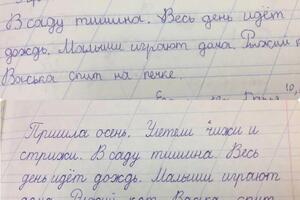 В саду тишина. Весь день идёт
дождь. Малыши играют дома. Рыжий к
Васька спит на печке.
Пришла осень. Улетели чижи и
стрижи. В саду тишина. Весь
день идёт дождь. Малыши играют
дома. Рыжий кот Васька спит